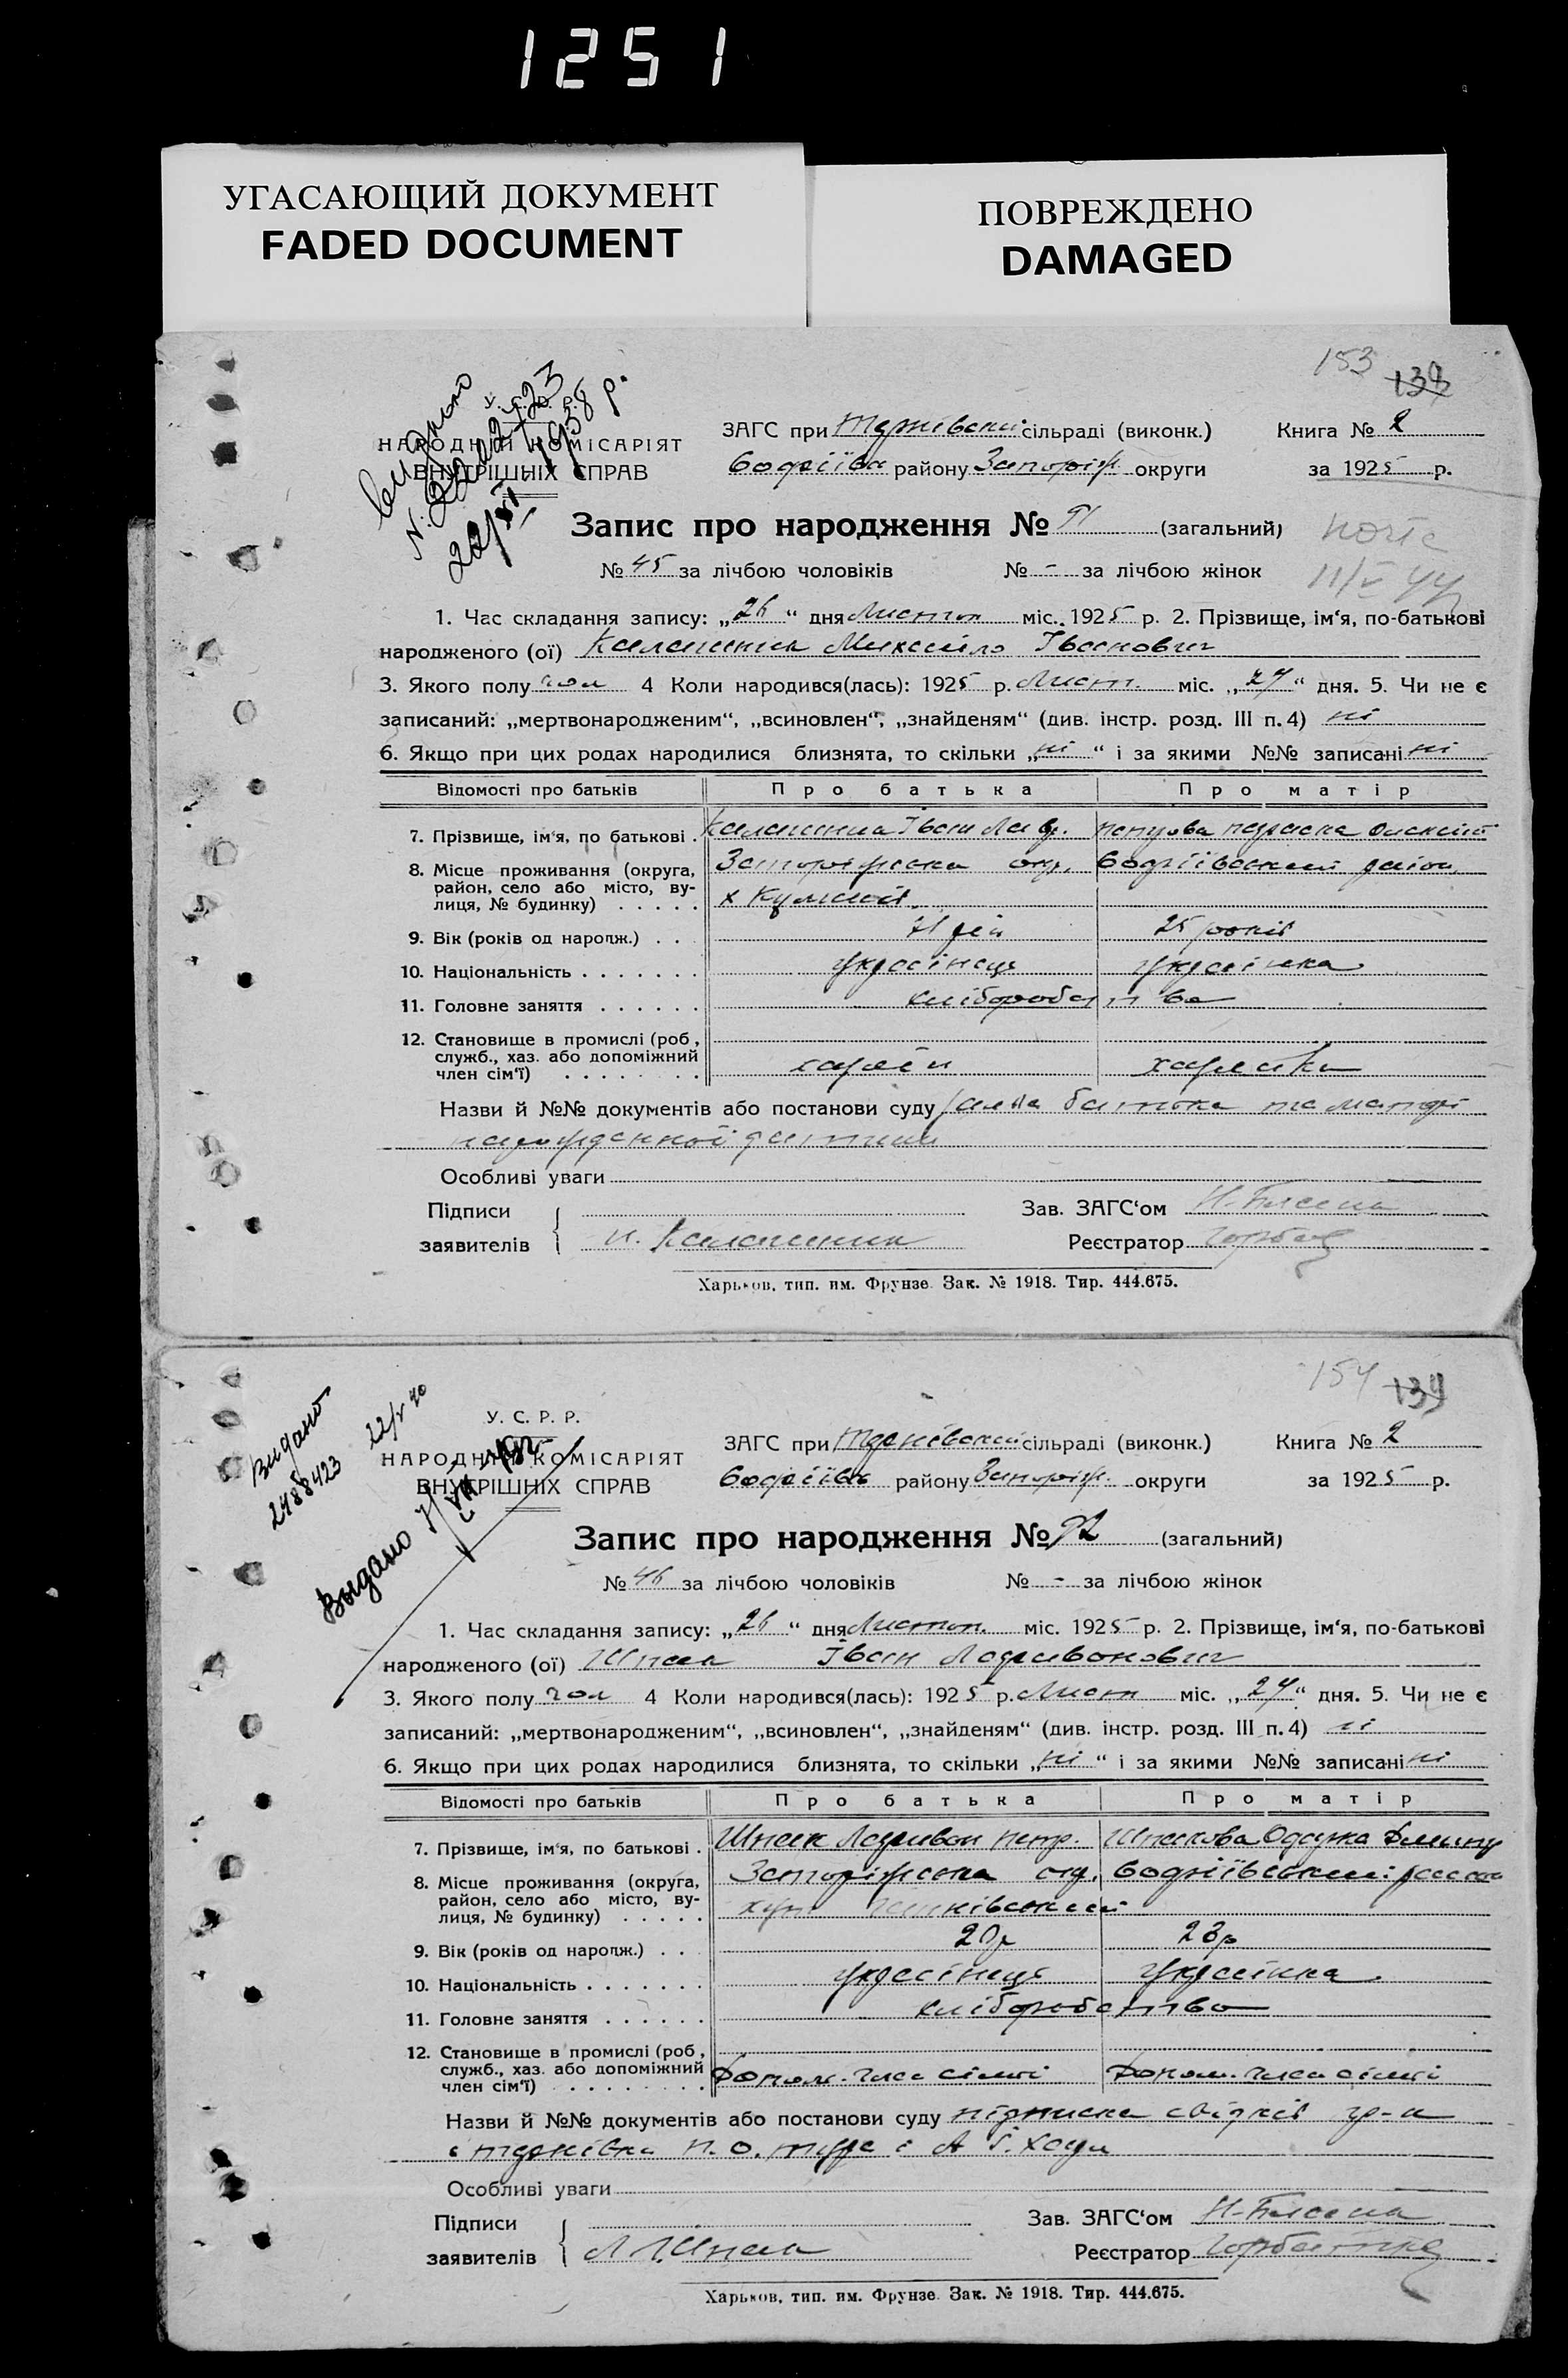 1251
УГАСАЮЩИЙ ДОКУМЕНТ
FADED DOCUMENT
ПОВРЕЖДЕНО
DAMAGED
153 139
видано
У. С. Р. Р.
НАРОДНІЙ КОМІСАРІЯТ
ВНУТРІШНІХ СПРАВ
ЗАГС при сільраді (виконк.) Книга № 2
району Запоріж. округи за 1925 р.
Запис про народження № 91 (загальний)
№ 45 за лічбою чоловіків № - за лічбою жінок
1. Час складання запису: „26“ дня Листоп міс. 1925 р. 2. Прізвище, ім‘я, по-батькові
народженого (ої) Калашник Михайло Іванович
3. Якого полу чол 4 Коли народився(лась): 1925 р. Лист. міс. „24“ дня. 5. Чи не є
записаний: „мертвонародженим“, „всиновлен“, „знайденям“ (див. інстр. розд. III п. 4) ні
6. Якщо при цих родах народилися близнята, то скільки „ні“ і за якими №№ записані ні
Відомості про батьків Про батька Про матір
7. Прізвище, ім‘я, по батькові . Калашник Іван
8. Місце проживання (округа, Запоріжська окр. район
район, село або місто, ву-
лиця, № будинку) . . . . . х
9. Вік (років од народж.) . . . 25 років
10. Національність . . . . . . . українець українка
11. Головне заняття . . . . . . хліборобство
12. Становище в промислі (роб,
служб., хаз. або допоміжний
член сім‘ї) . . . . . . . . хазяїн хазяйка
Назви й №№ документів або постанови суду заява батька та матері
Особливі уваги
Підписи Зав. ЗАГС‘ом
заявителів Калашник Реєстратор
Харьков, тип. им. Фрунзе. Зак. № 1918. Тир. 444.675.
154 139
Видано 22/V 40
2488423
Выдано
У. С. Р. Р.
НАРОДНІЙ КОМІСАРІЯТ
ВНУТРІШНІХ СПРАВ
ЗАГС при сільраді (виконк.) Книга № 2
району Запоріж. округи за 1925 р.
Запис про народження № 92 (загальний)
№ 46 за лічбою чоловіків № - за лічбою жінок
1. Час складання запису: „26“ дня Листоп. міс. 1925 р. 2. Прізвище, ім‘я, по-батькові
народженого (ої) Шпак Іван Ларивонович
3. Якого полу чол 4 Коли народився(лась): 1925 р. Лист міс. „24“ дня. 5. Чи не є
записаний: „мертвонародженим“, „всиновлен“, „знайденям“ (див. інстр. розд. III п. 4) ні
6. Якщо при цих родах народилися близнята, то скільки „ні“ і за якими №№ записані ні
Відомості про батьків Про батька Про матір
7. Прізвище, ім‘я, по батькові . Шпак Ларивон Петр. Шпакова Одарка
8. Місце проживання (округа, Запоріжська окр.
район, село або місто, ву-
лиця, № будинку) . . . . . хут
9. Вік (років од народж.) . . . 23р
10. Національність . . . . . . . українець українка
11. Головне заняття . . . . . . хліборобство
12. Становище в промислі (роб,
служб., хаз. або допоміжний
член сім‘ї) . . . . . . . . Допом. член сімї Допом. член сімї
Назви й №№ документів або постанови суду підписка свідків гр-н
Особливі уваги
Підписи Зав. ЗАГС‘ом
заявителів Л Шпак Реєстратор
Харьков, тип. им. Фрунзе. Зак. № 1918. Тир. 444.675.